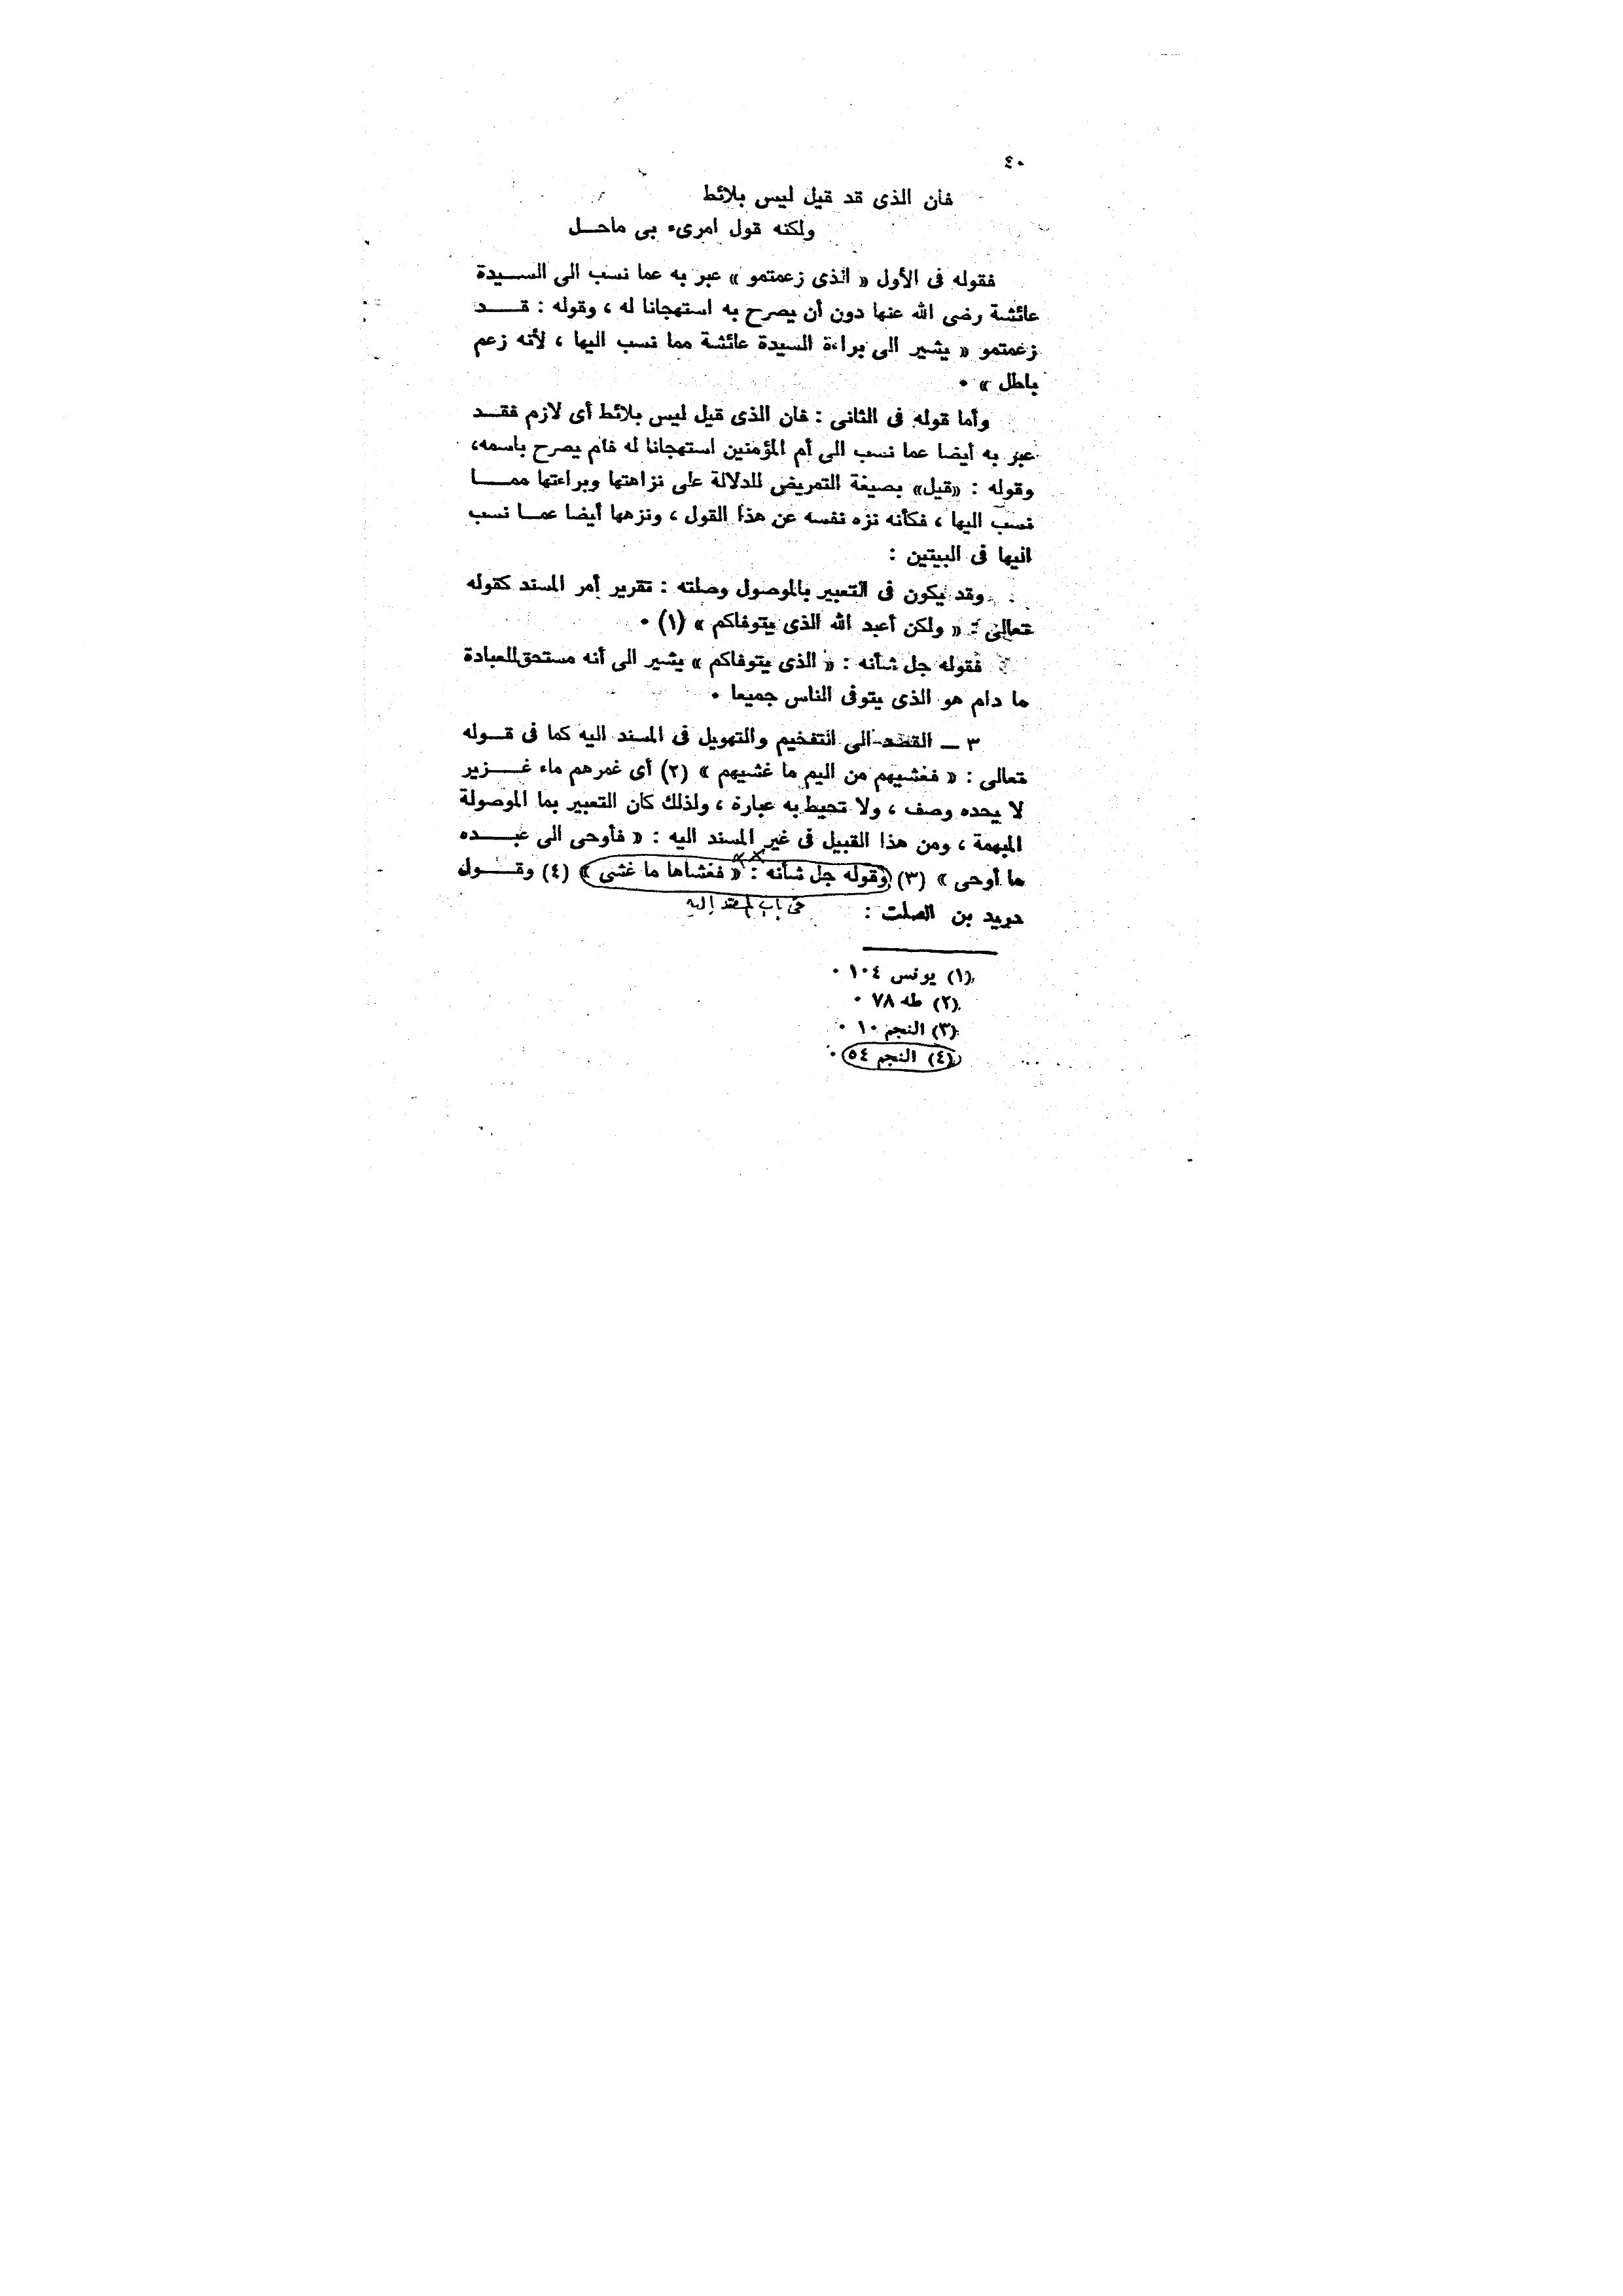 ٤٠
فان الذى قد قيل ليس بلائط
ولكنه قول امرىء بى ماحل
فقوله فى الأول « الذى زعمتمو » عبر به عما نسب الى السيدة
عائشة رضى الله عنها دون أن يصرح به استهجانا له ، وقوله : قد
زعمتمو « يشير الى براءة السيدة عائشة مما نسب اليها ، لأنه زعم
باطل » ٠
وأما قوله فى الثانى : فان الذى قيل ليس بلائط أى لازم فقد
عبر به أيضا عما نسب الى أم المؤمنين استهجانا له فلم يصرح باسمه،
وقوله : «قيل» بصيغة التمريض للدلالة على نزاهتها وبراءتها مما
نسب اليها ، فكأنه نزه نفسه عن هذا القول ، ونزهها أيضا عما نسب
اليها فى البيتين :
وقد يكون فى التعبير بالموصول وصلته : تقرير أمر المسند كقوله
تعالى : « ولكن أعبد الله الذى يتوفاكم » (١) ٠
فقوله جل شأنه : « الذى يتوفاكم » يشير الى أنه مستحق للعبادة
ما دام هو الذى يتوفى الناس جميعا ٠
٣ ــ القصد الى التفخيم والتهويل فى المسند اليه كما فى قوله
تعالى : « فغشيهم من اليم ما غشيهم » (٢) أى غمرهم ماء غزير
لا يحده وصف ، ولا تحيط به عبارة ، ولذلك كان التعبير بما الموصولة
المبهمة ، ومن هذا القبيل فى غير المسند اليه : « فأوحى الى عبده
ما أوحى » (٣) وقوله جل شأنه : « فغشاها ما غشى » (٤) وقول
دريد بن الصلت :
فى باب المسند إليه
(١) يونس ١٠٤ ٠
(٢) طه ٧٨ ٠
(٣) النجم ١٠ ٠
(٤) النجم ٥٤ ٠